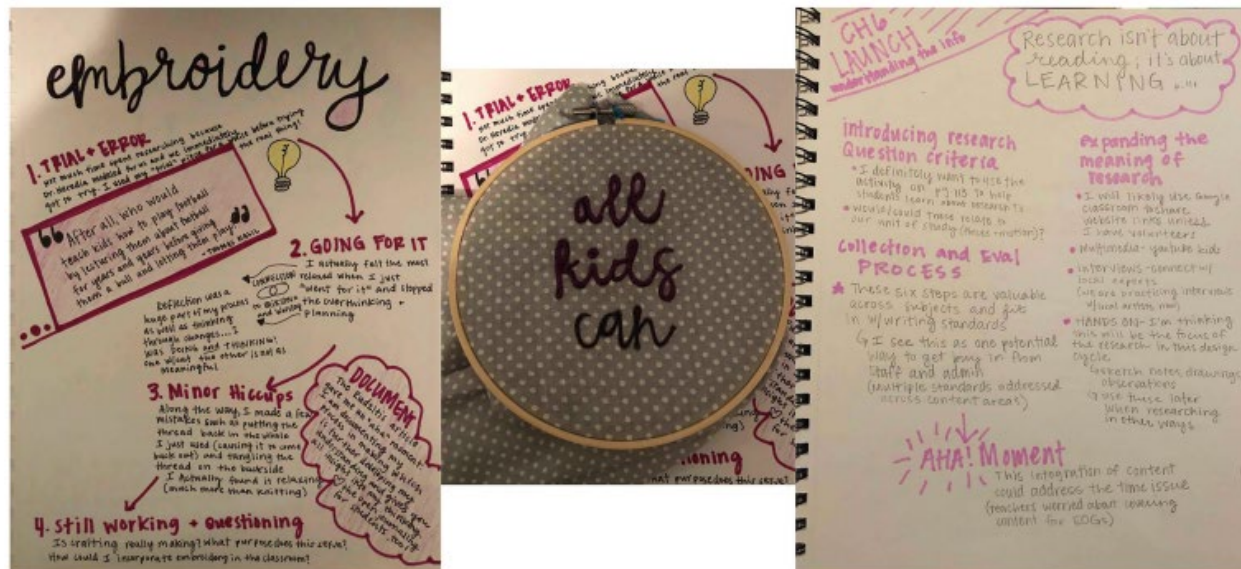 embroidery
1. TRIAL + ERROR
Not much time spent researching because
Dr. Heredia modeled for us and we immediately
got to try. I used my "trial" piece for a while before trying
the real thing!
After all, who would
teach kids how to play football
by lecturing them about football
for years and years before giving
them a ball and letting them play?
2. GOING FOR IT
I actually felt the most
relaxed when I just
"went for it" and stopped
the overthinking +
planning
CONNECTION
to
Reflection was a
huge part of my process
as well as thinking
through changes... I
was DOING and THINKING!
one w/out the other is not as
meaningful
3. Minor Hiccups
Along the way, I made a few
mistakes such as putting the
thread back in the whole
I just used (causing it to come
back out) and tangling the
thread on the backside
I actually found is relaxing
(much more than knitting)
DOCUMENT
The article
gave me an "aha" moment.
I am documenting my
process in making which
is further developing my
understanding and gives you
all insight into my thinking.
for students
4. Still working + Questioning
Is crafting really making? What purpose does this serve?
How could I incorporate embroidery in the classroom?
1. TRIAL + ERROR
all
kids
can
CH6
LAUNCH
understanding the info
Research isn't about
reading; it's about
LEARNING
introducing research
Question criteria
I definitely want to use the
activity on pg 115 to help
students learn about research Q's
would/could these relate to
our unit of study (force + motion)?
Collection and Eval
PROCESS
These six steps are valuable
across subjects and fits
in w/writing standards
I see this as one potential
way to get buy in from
staff and admin
(multiple standards addressed
across content areas)
expanding the
meaning of
research
I will likely use Google
classroom to share
website links unless
I have volunteers
Multimedia - youtube kids
interviews - connect w/
local experts
(we are practicing interviews
w/local artists now)
HANDS ON - I'm thinking
this will be the focus of
the research in this design
cycle.
sketch notes, drawings
observations
use these later
when researching
in other ways
AHA! Moment
This integration of content
could address the time issue
(teachers worried about covering
content for EOGs)